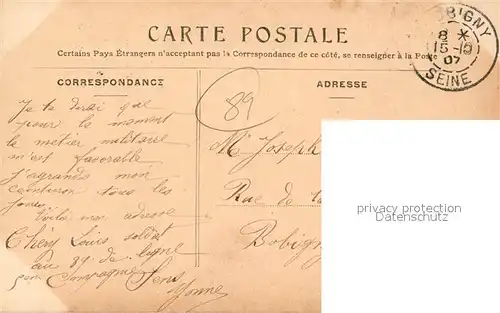 CARTE POSTALE
Certains Pays Étrangers n'acceptant pas la Correspondance de ce côté, se renseigner à la Poste
BOBIGNY
8 *
15-10
07
SEINE
CORRESPONDANCE
Je te dirai que
pour le moment
le métier militaire
m'est favorable
J'agrandi mon
ceinturon tous les
jours
Voilà mon adresse
Chéry Louis soldat
au 89 de ligne
Compagnie Sens
Yonne
ADRESSE
89
Mr Joseph
Rue de la
Bobigny
privacy protection
Datenschutz